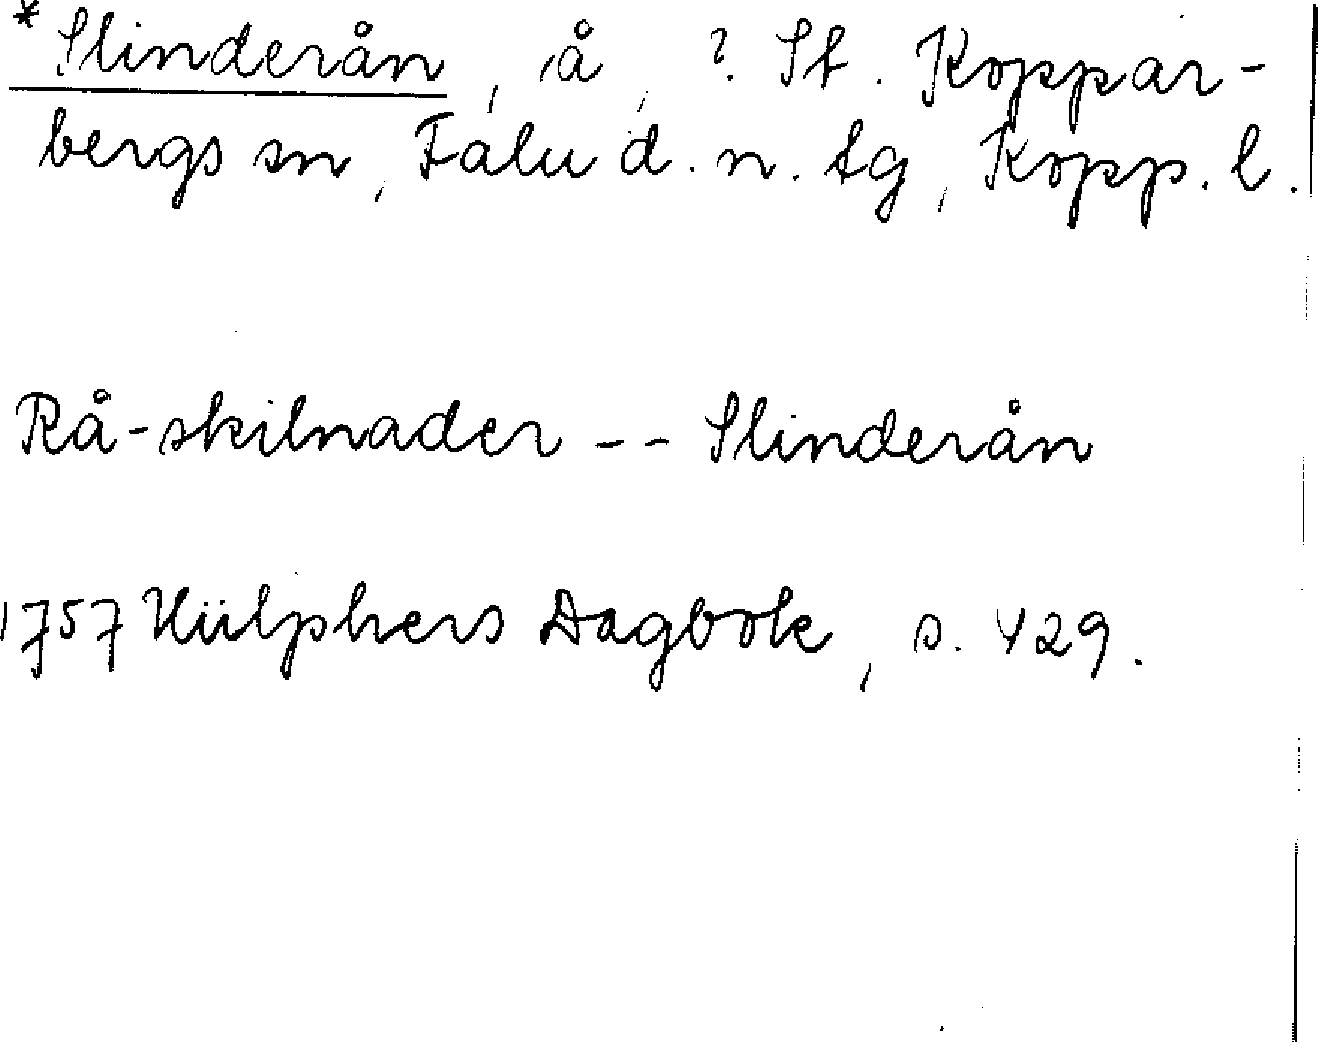 *Slinderån, å, ? St. Koppar-
bergs sn, Falu d. n. tg, Kopp. l.
Rå-skilnader -- Slinderån
1757 Hülphers Dagbok, s. 429.